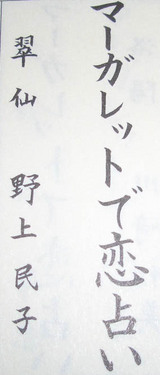 マーガレットで恋占い
翠仙　野上民子